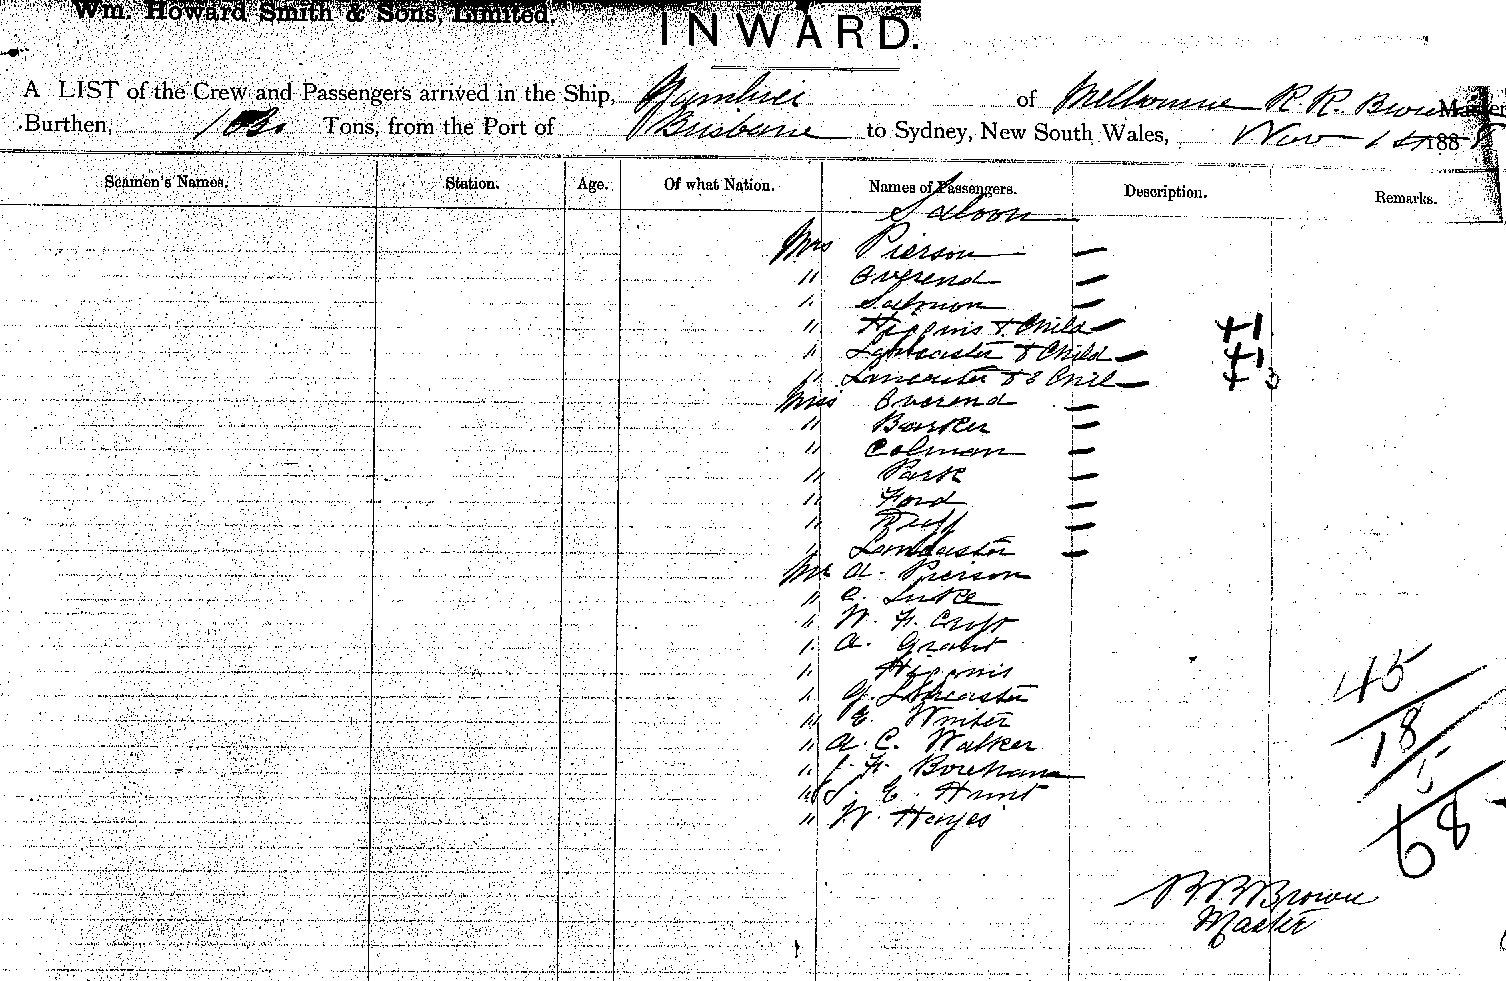 Wm. Howard Smith & Sons, Limited.
INWARD.
A LIST of the Crew and Passengers arrived in the Ship, of Melbourne R. R. Brown Master
Burthen, Tons, from the Port of Brisbane to Sydney, New South Wales, Nov 188
Seamen's Names. Station. Age. Of what Nation. Names of Passengers. Description. Remarks.
Saloon
Mrs Pierson
" Overend
" Salomon
" Higginis & Child +1
" Lancaster & Child +1
" Lancaster & 3 Chil + 3
Miss Overend
" Barker
" Colman
" Park
" Ford
" Ruff
" Lancaster
Mr A. Pierson
" C. Luke
" W. H. Croft
" A. Grant
" Higginis
" G. Lancaster
" E. Winter
" A. C. Walker
" J. H. Boreham
" J. E. Hunt
" W. Hayes
45
18
5
68
R R Brown
Master